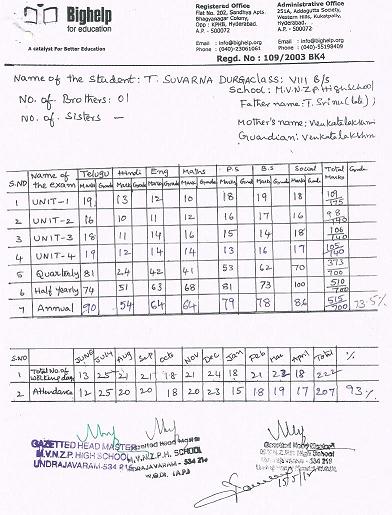 Bighelp
for education
A catalyst For Better Education
Registered Office
Flat No. 202, Sandhya Apts.
Bhagyanagar Colony,
Opp : KPHB, Hyderabad.
A.P. - 500072
Email : info@bighelp.org
Phone : 040-23061061
Administrative Office
251A, Addagutta Society,
Western Hills, Kukatpally,
Hyderabad.
A.P. - 500072
Email : info@bighelp.org
Phone : 040-55198409
Regd. No : 109/2003 BK4
Name of the student: T. SUVARNA DURGA class: VIII B/S
School: M.V.N.Z.P High School
No. of Brothers: 01
Father name: T. Srinu (late)
No. of Sisters —
Mother's name: Venkatalakshmi
Guardian: Venkatalakshm
S.NO Name of the exam Telugu Hindi Eng Maths P.S B.S Social Total Marks Grade
Marks Grade Marks Grade Marks Grade Marks Grade Marks Grade Marks Grade Marks Grade
1 UNIT-1 19 13 12 10 18 19 18 109/175
2 UNIT-2 16 10 11 12 16 17 16 98/140
3 UNIT-3 18 11 14 16 15 14 18 106/140
4 UNIT-4 19 12 14 14 13 16 17 105/140
5 Quarterly 81 24 42 41 53 62 70 373/700
6 Half Yearly 74 51 63 68 81 73 100 510/700
7 Annual 90 54 64 64 79 78 86 515/700 73.5%
S.NO JUNE JULY Aug Sep Octo Nov Dec Jan Feb Mar April Total %
1 Total No. of Working days 13 25 21 21 18 21 24 18 21 22 18 222
2 Attendance 12 25 20 20 18 20 23 15 18 19 17 207 93%
GAZETTED HEAD MASTER
M.V.N.Z.P. HIGH SCHOOL
UNDRAJAVARAM-534 216
Gazetted Head Master
M.V.N.Z.P.H. SCHOOL
UNDRAJAVARAM - 534 216
W.G.Dt. (A.P.)
Gazetted Head Master
M.V.N.Z.P. High School